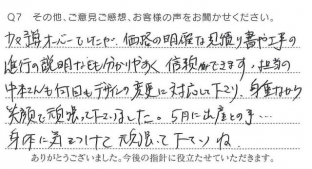 Q7 その他、ご意見ご感想、お客様の声をお聞かせください。
予算オーバーでしたが、価格の明確な見積り書や工事の
進行の説明なども分かりやすく信頼ができます。担当の
中本さんも何回もデザインの変更に対応して下さり、身重ながら
笑顔で頑張って下さいました。5月に出産との事…
身体に気をつけて頑張って下さいね。
ありがとうございました。今後の指針に役立たせていただきます。